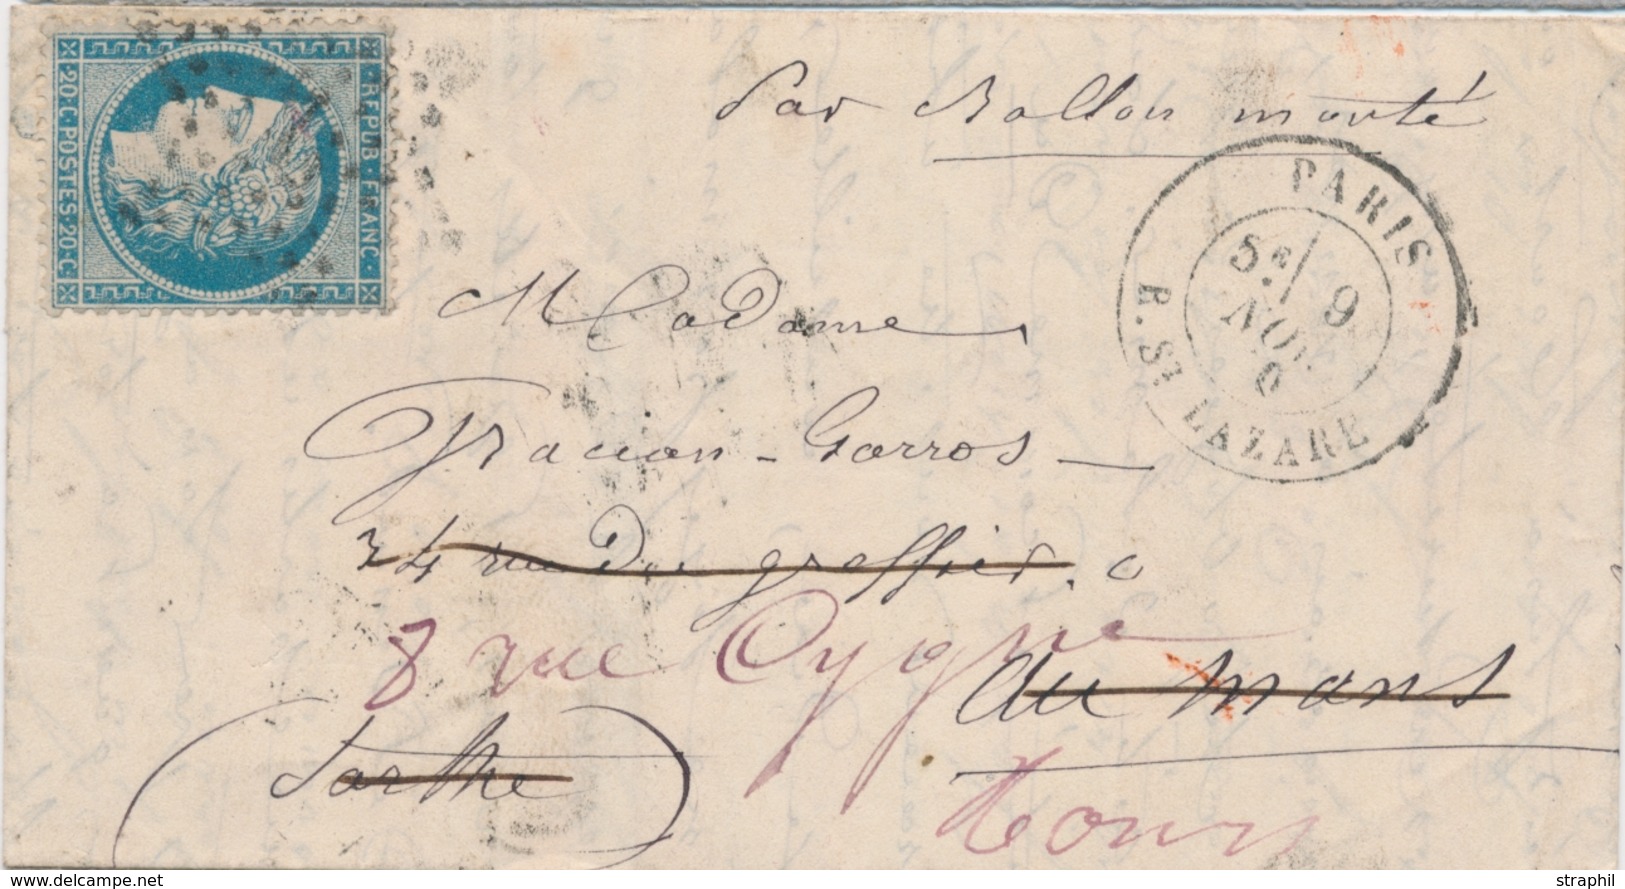 Par Ballon monté
REPUB · FRANC ·
· 20 · C · POSTES · 20 · C ·
PARIS
5E/ 9
NOV.
R. ST LAZARE
Madame
Gracian - Garros -
34 rue du greffier
8 rue Cygne
au mans
Sarthe
Tours
straphil